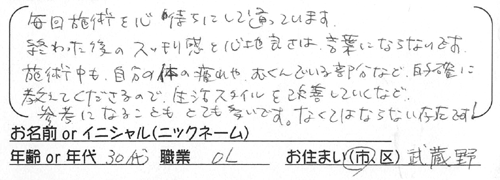 毎回施術を心待ちにして通っています。
終わった後のスッキリ感と心地良さは、言葉にならないです。
施術中も、自分の体の疲れや、むくんでいる部分など、的確に
教えてくださるので、生活スタイルを改善していくなど、
参考になることもとても多いです。なくてはならない存在です!
お名前 or イニシャル(ニックネーム)
年齢 or 年代 30代 職業 OL お住まい(市、区) 武蔵野